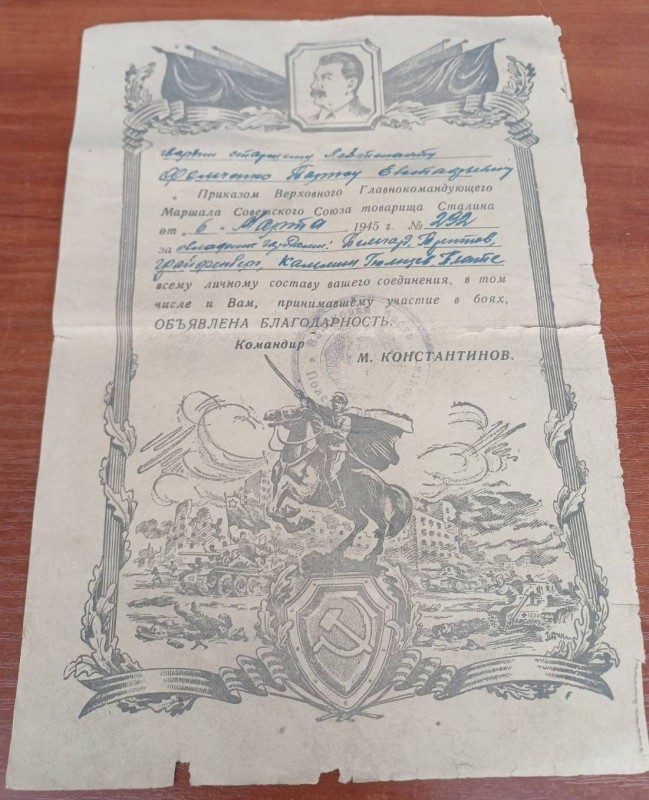 гвардии старшему лейтенанту
Фоменко
Приказом Верховного Главнокомандующего
Маршала Советского Союза товарища Сталина
от " 6 " Марта 1945 г. № 292
за овладение городами: Бельгард, Трептов,
Грайфенберг, Каммин Гюльцов Плате
всему личному составу вашего соединения, в том
числе и Вам, принимавшему участие в боях,
ОБЪЯВЛЕНА БЛАГОДАРНОСТЬ.
Командир
М. КОНСТАНТИНОВ.